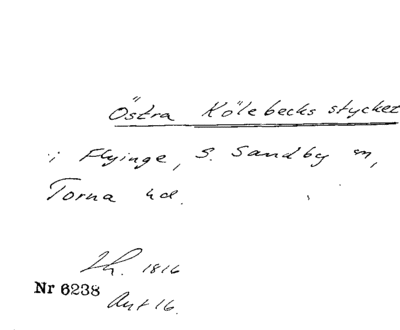 Östra Kölebecks stycket
i Flyinge, S. Sandby sn,
Torna hd.
1816
Nr 6238
Akt 16.